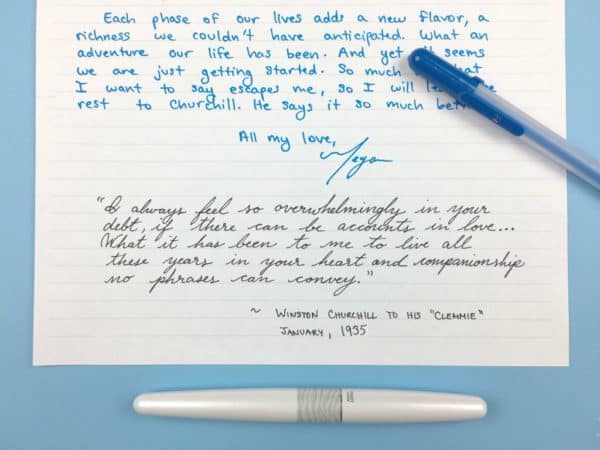 Each phase of our lives adds a new flavor, a
richness we couldn't have anticipated. What an
adventure our life has been. And yet it seems
we are just getting started. So much
I want to say escapes me, so I will
rest to Churchill. He says it so much
All my love,
Megan
"I always feel so overwhelmingly in your
debt, if there can be accounts in love...
What it has been to me to live all
these years in your heart and companionship
no phrases can convey."
~ WINSTON CHURCHILL TO HIS "CLEMMIE"
JANUARY, 1935